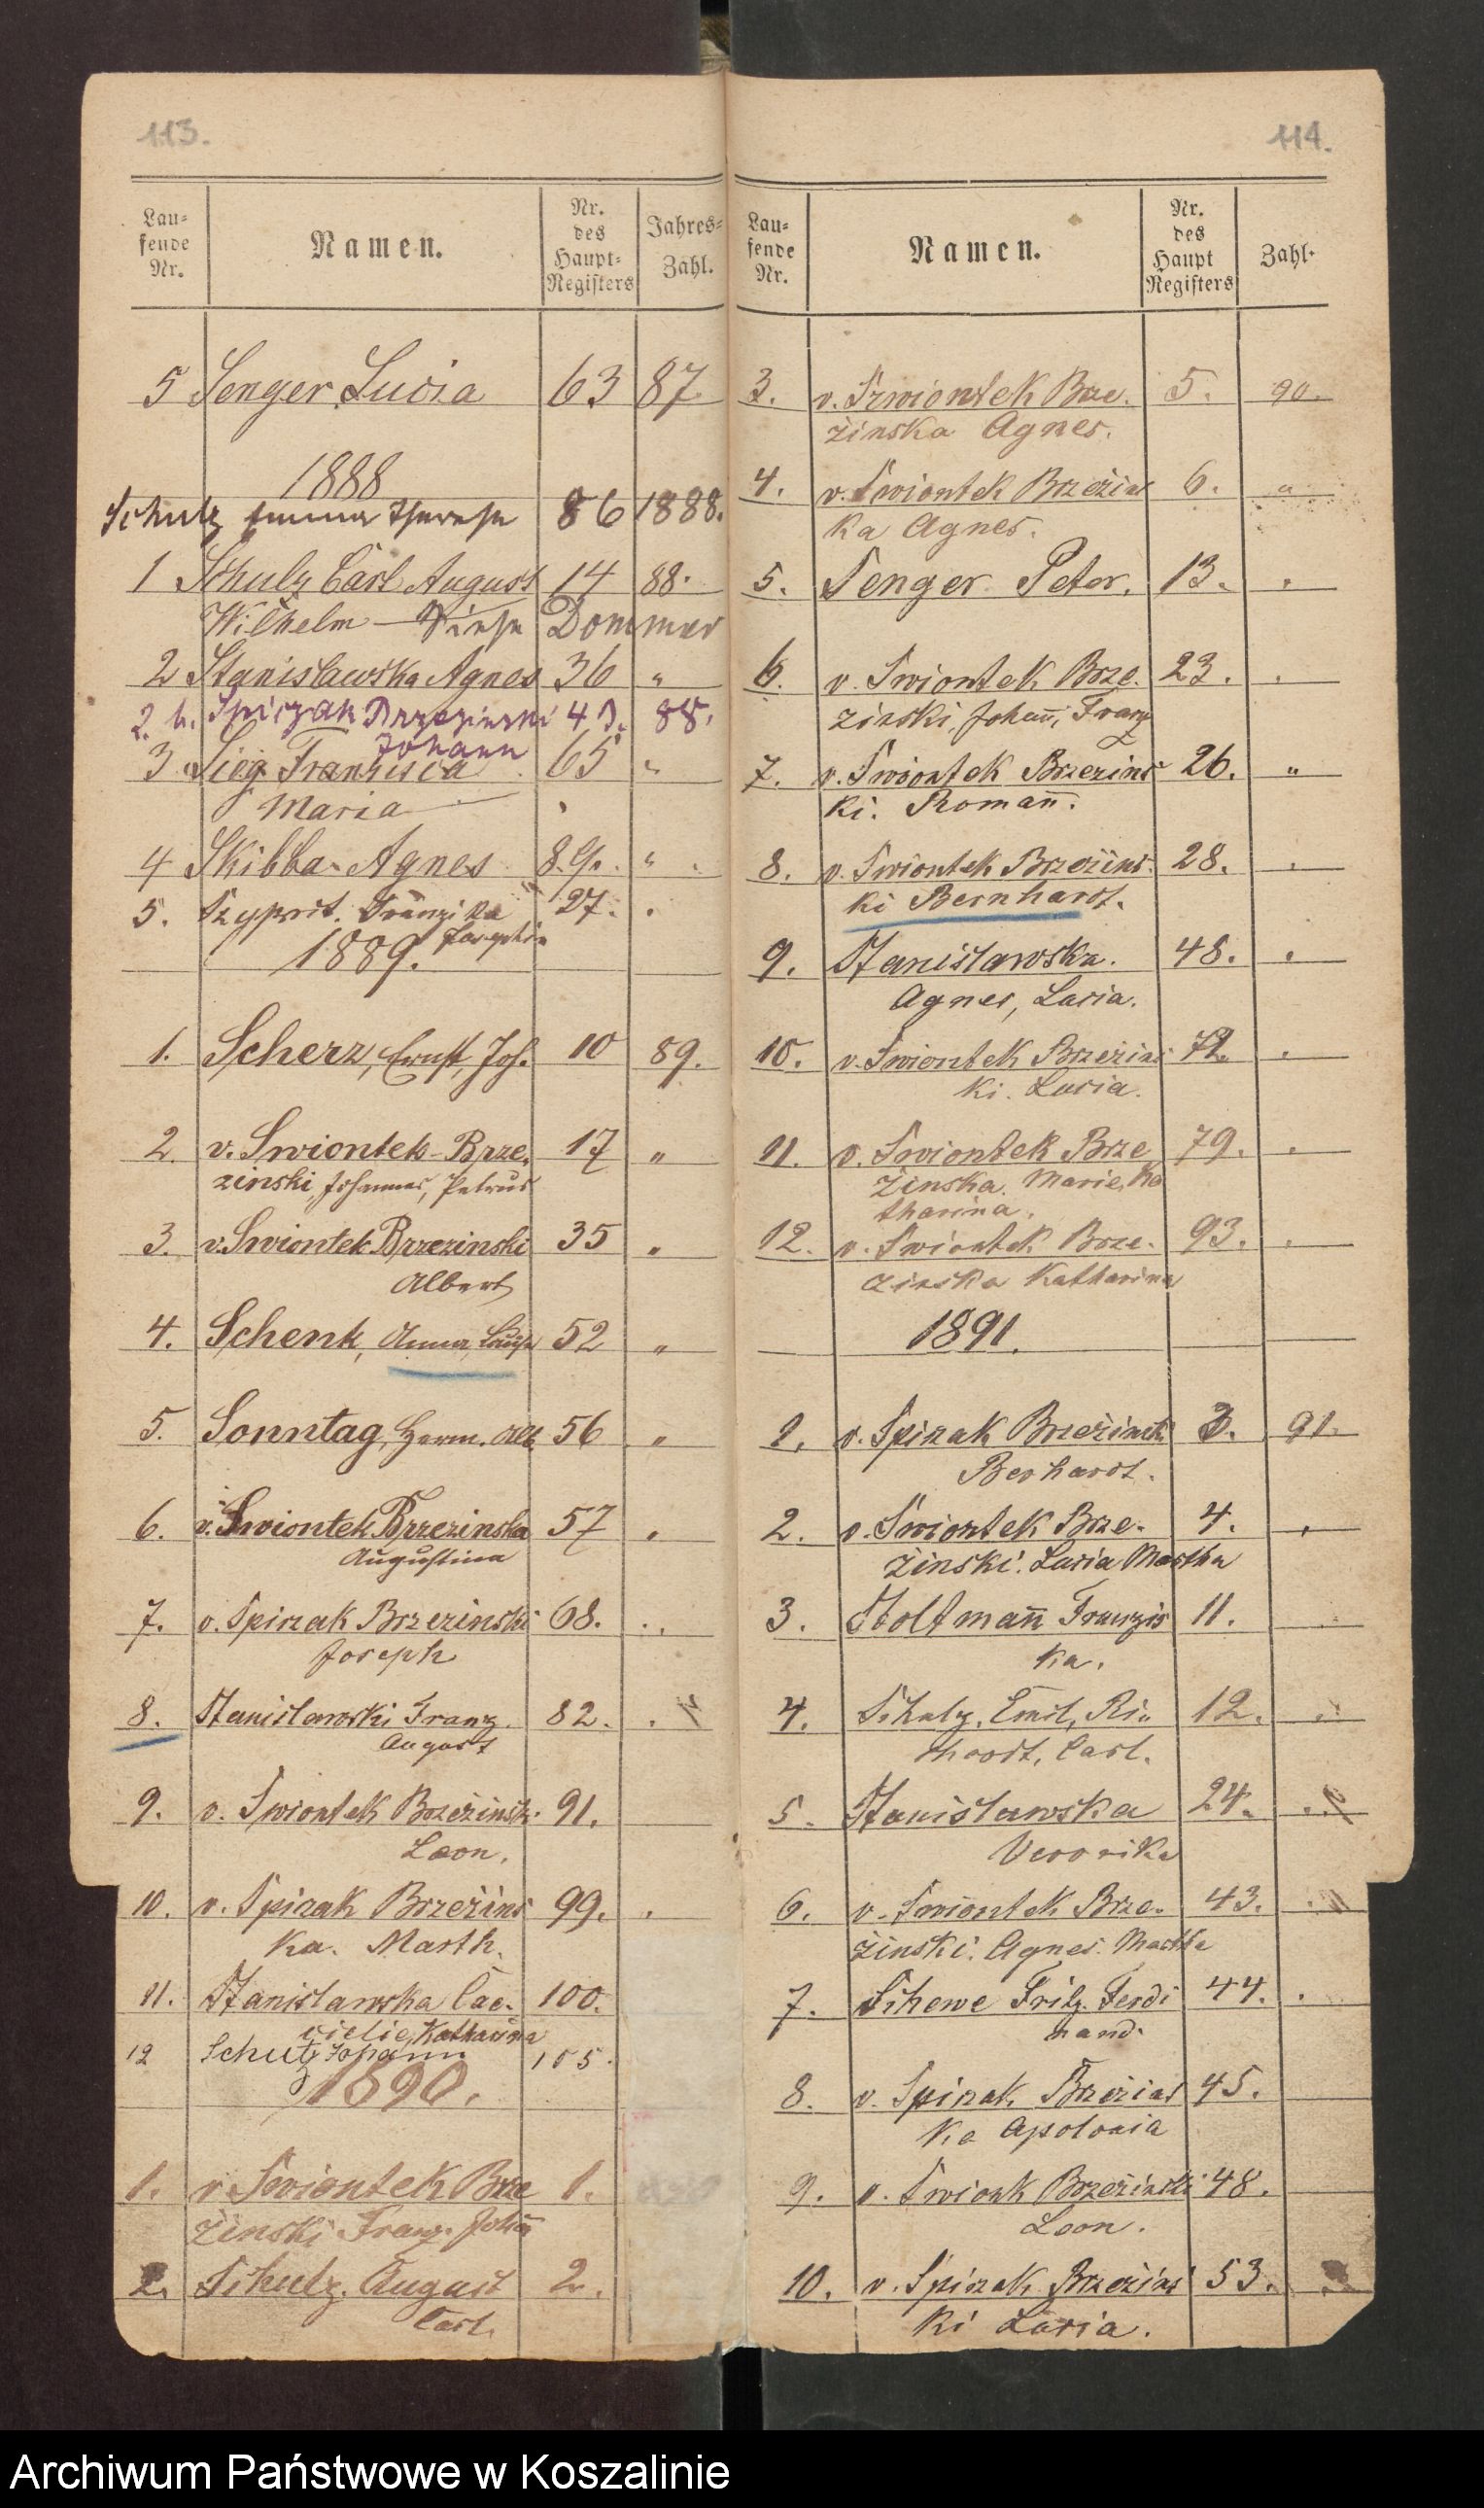 113.
Lau-
fende
Nr.
Namen.
Nr.
des
Haupt-
Registers
Jahres-
Zahl.
5 Senger Lucia 63 87
1888
Schulz Emma Therese 86 1888.
1 Schulz Carl August 14 88.
Wilhelm — Dommer
2 Stanislawska Agnes 36 "
2. b. Spiczak Brzezinski 43. 88.
Johann
3 Sieg Franzisca 65 "
Maria
4 Skibba Agnes 8. "
5. Szyprit. Franzika 27. .
Josephin
1889.
1. Scherz, Ernst, Joh. 10 89.
2 v. Swiontek-Brze- 17 "
zinski, Johannes, Petrus
3. v. Swiontek Brzezinski 35 "
Albert
4. Schenk, Anna, Louise 52 "
5. Sonntag, Herm. Alb. 56 "
6. v. Swiontek Brzezinska 57 .
Augustina
7. v. Spiczak Brzezinski 68. . .
Joseph
8. Stanislawski Franz. 82. .
August
9. v. Swiontek Brzežinski. 91.
Leon.
10. v. Spizak Brzežins 99. .
ka. Marth.
11. Stanislawska Cae- 100.
cielie, Katharina
12 Schulz Johann 105.
1890.
1. v. Swiontek Brze 1.
žinski Franz. Johañ
2. Schulz. August 2.
Carl.
114.
Lau-
fende
Nr.
Namen.
Nr.
des
Haupt
Registers
Zahl.
3. v. Szwiontek Brze. 5. 90.
žinska Agnes.
4. v. Swiontek Brzežins 6. "
ka Agnes.
5. Senger Peter. 13. .
6. v. Swiontek Brze. 23. .
zinski, Johañ, Franz
7. v. Swiontek Brzezins 26. "
ki. Romañ.
8. v. Swiontek Brzežins. 28. .
ki Bernhardt.
9. Stanislawska. 48. .
Agnes, Lucia.
10. v. Swiontek Brzežins .
ki. Lucia.
11. v. Swiontek Brze 79. .
žinska. Marie, Ka
tharina.
12. v. Swiontek Brze. 93. .
zinska Katharina
1891.
1. v. Spizak Brzežinski 3. 91.
Berhardt.
2. v. Swiontek Brze. 4. .
žinski. Lucia Martha
3. Stoltmañ Franzis 11.
ka.
4. Schulz, Emil, Ri- 12. .
chardt, Carl.
5. Stanislawska 24. .
Veronika
6. v. Swiontek Brze. 43. .
žinski. Agnes. Martha
7. Schewe Fritz. Ferdi 44. .
nand.
8. v. Spizak Brzežins 45.
ka Apolonia
9. v. Swiontk Brzežinski 48.
Leon.
10. v. Spizak Brzežins 53.
ki Lucia.
Archiwum Państwowe w Koszalinie